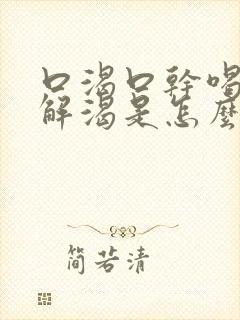 口渴口幹喝
解渴是怎麼
简若清